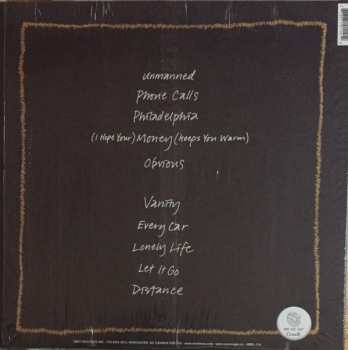 unmanned
Phone Calls
Philadelphia
(I Hope Your) Money (Keeps You Warm)
Obvious
Vanity
Every Car
Lonely Life
Let It Go
Distance